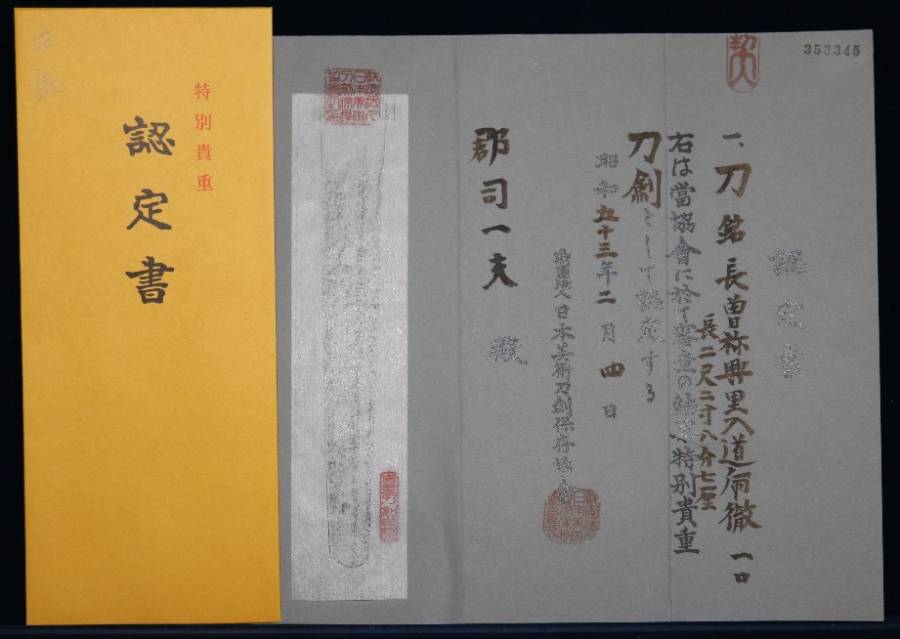 特別貴重
認定書
353345
認定書
一、刀 銘 長曽祢興里入道乕徹 一口
長二尺二寸八分七厘
右は當協會に於て審査の結果特別貴重
刀剣として認定する
昭和五十三年二月四日
財團法人日本美術刀剣保存協會
郡司一夫 殿